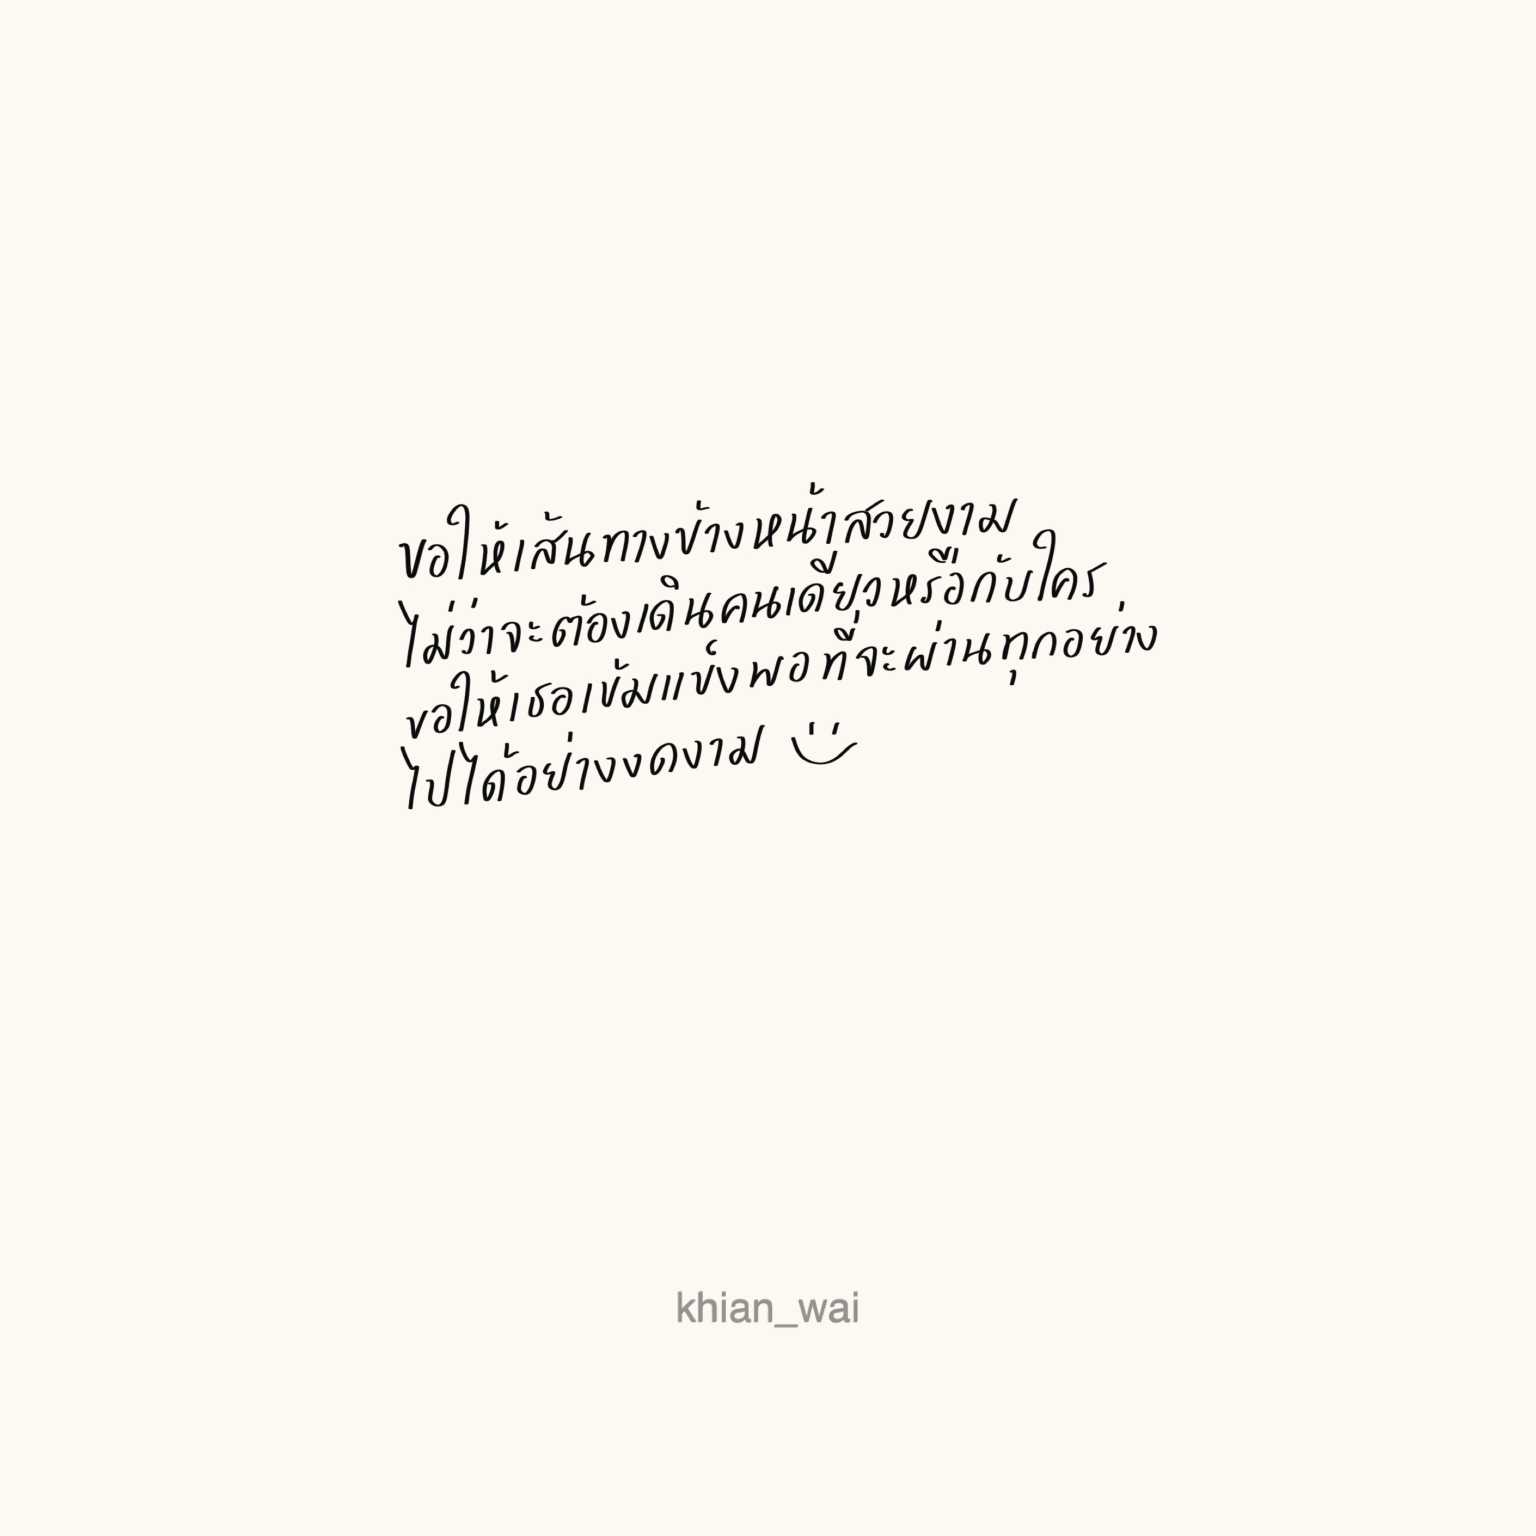 ขอให้เส้นทางข้างหน้าสวยงาม
ไม่ว่าจะต้องเดินคนเดียวหรือกับใคร
ขอให้เธอเข้มแข็งพอที่จะผ่านทุกอย่าง
ไปได้อย่างงดงาม
khian_wai